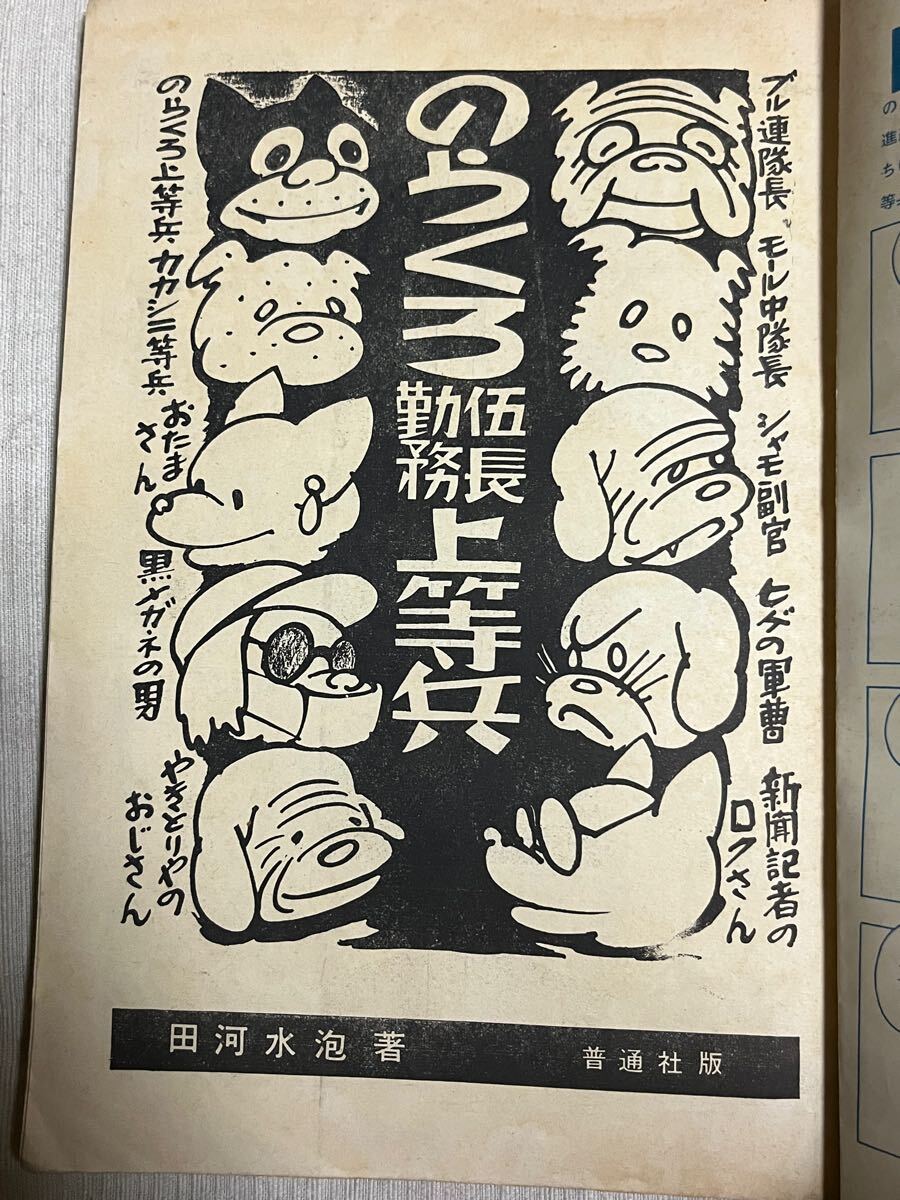 のらくろ
伍長
勤務
上等兵
ブル連隊長
モール中隊長
シャモ副官
ヒゲの軍曹
新聞記者の
ロクさん
のらくろ上等兵・カカシ二等兵
おたま
さん
黒メガネの男
やきとりやの
おじさん
田河水泡著
普通社版
の
進
ち
等